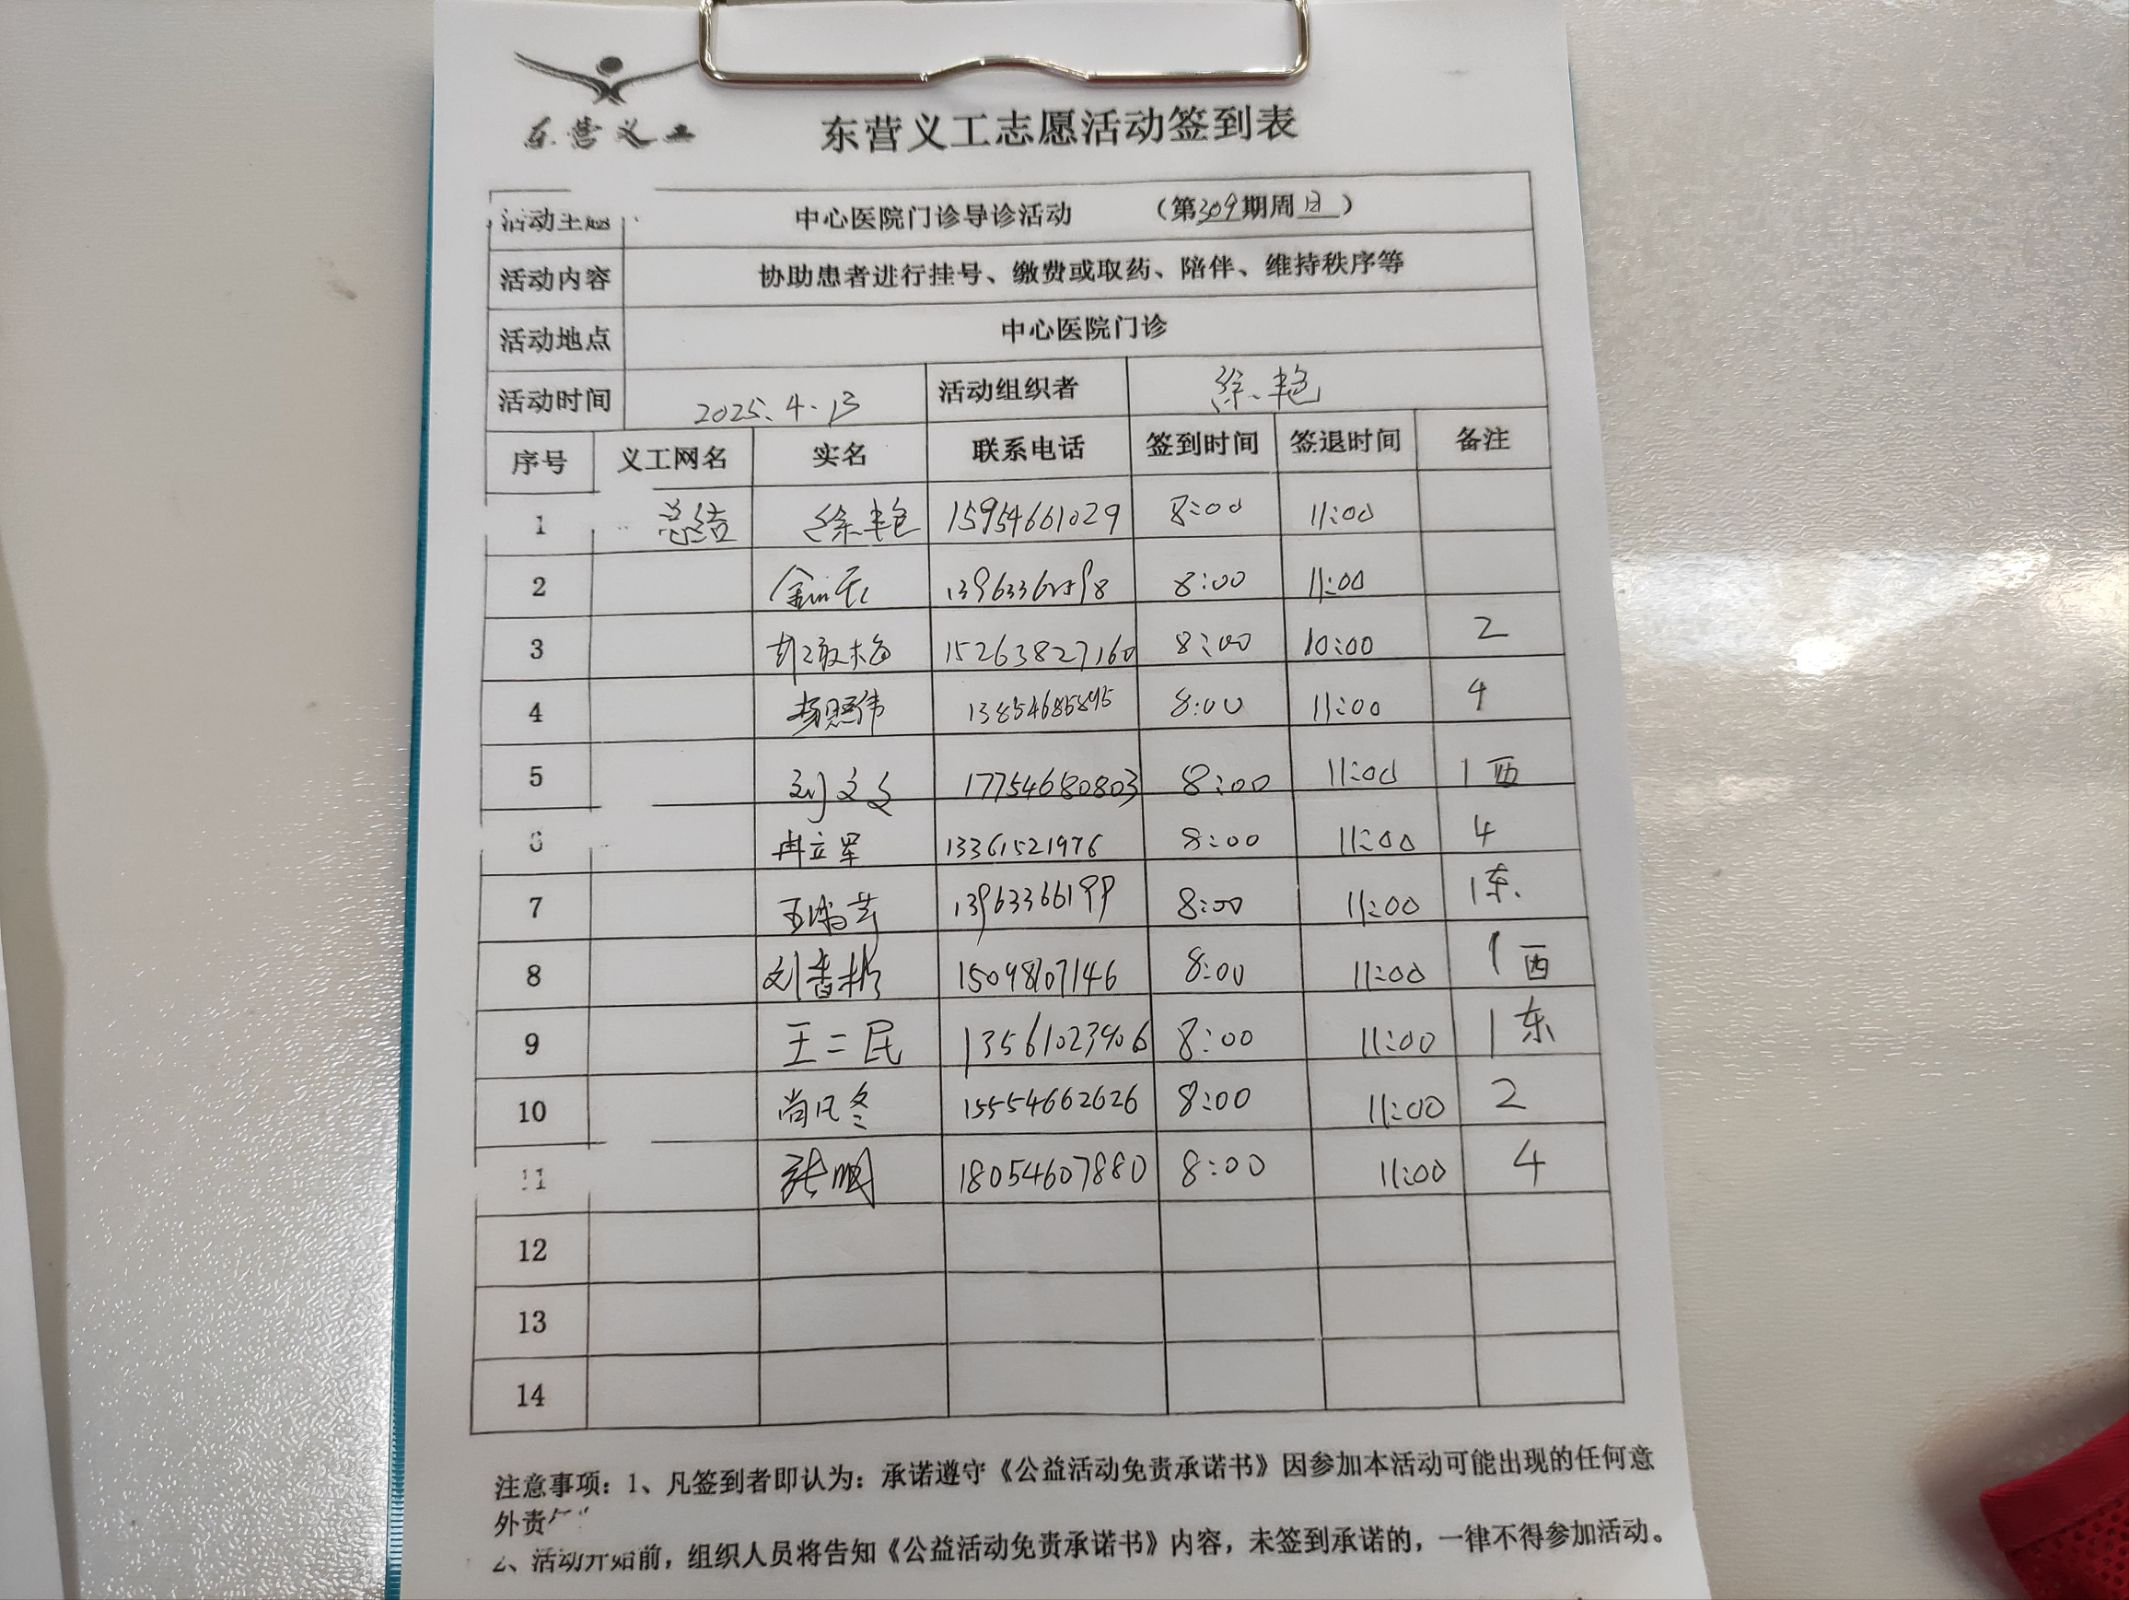 东营义工
东营义工志愿活动签到表
活动主题 中心医院门诊导诊活动 （第309期周日）
活动内容 协助患者进行挂号、缴费或取药、陪伴、维持秩序等
活动地点 中心医院门诊
活动时间 2025.4.13 活动组织者 徐艳
序号 义工网名 实名 联系电话 签到时间 签退时间 备注
1 总结 徐艳 15954661029 8:00 11:00
2 8:00 11:00
3 胡敬梅 15263827160 8:00 10:00 2
4 杨照伟 13854685895 8:00 11:00 4
5 刘文文 17754680803 8:00 11:00 1西
6 冉立军 13361521976 8:00 11:00 4
7 13963366199 8:00 11:00 1东
8 刘春彬 15098107146 8:00 11:00 1西
9 王二民 13561023906 8:00 11:00 1东
10 尚凤冬 15554662626 8:00 11:00 2
11 张鹏 18054607880 8:00 11:00 4
12
13
14
注意事项：1、凡签到者即认为：承诺遵守《公益活动免责承诺书》因参加本活动可能出现的任何意
外责
2、活动开始前，组织人员将告知《公益活动免责承诺书》内容，未签到承诺的，一律不得参加活动。